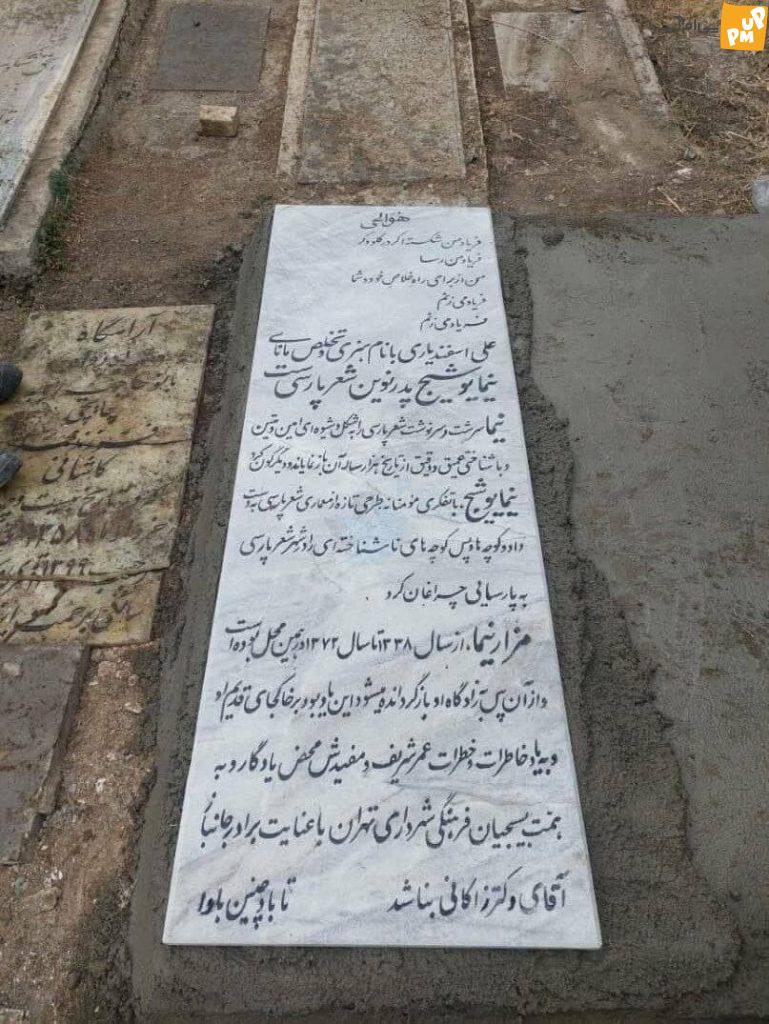 هوالحی
فریاد من شکسته اگر در گلو وگر
فریاد من رسا
من از برای راه خلاص خود و شما
فریاد می زنم
فریاد می زنم
علی اسفندیاری با نام هنری و تخلص مانای
نیما یوشیج پدر نوین شعر پارسی ست
نیما سرشت و سرنوشت شعر پارسی را به شکل و شیوه ای امین و متین
و با شناختی عمیق و دقیق از تاریخ هزار ساله آن بازنمایاند و دیگرگون کرد
نیما یوشیج، با تفکری مؤمنانه طرحی تازه از معماری شعر پارسی به دست
داد و کوچه ها و پس کوچه های ناشناخته ای را در شهر شعر پارسی
به پارسایی چراغان کرد
مزار نیما، از سال ۱۳۳۸ تا سال ۱۳۷۲ در همین محل بوده است
و از آن پس به زادگاه او بازگردانده میشود این یادبود بر خاکجای قدیم او
و به یاد خاطرات و خطرات عمر شریف و مفیدش محض یادگار و به
همت بسیجیان فرهنگی شهرداری تهران با عنایت برادر جانباز
آقای دکتر زاکانی بنا شد تا باد چنین بادا
آرامگاه
چایچی
کاشانی
۱۳۹۹
UP
PM